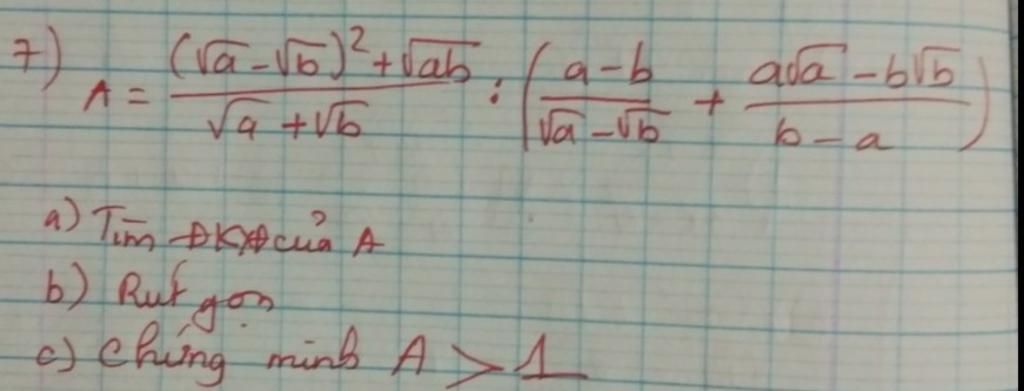 7) A = ((√a - √b)² + √ab) / (√a + √b) : ((a - b) / (√a - √b) + (a√a - b√b) / (b - a))
a) Tìm ĐKXĐ của A
b) Rút gọn
c) Chứng minh A > 1